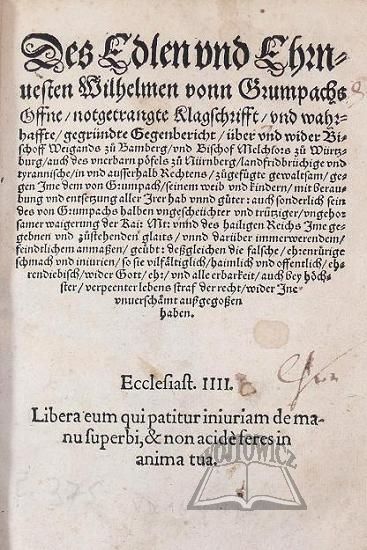 Des Edlen vnd Ehrn-
uesten Wilhelmen vonn Grumpachs
Offne / notgetrangte Klagschrifft / vnd wahr-
haffte / gegründte Gegenbericht / über vnd wider Bi-
schoff Weigands zů Bamberg / vnd Bischof Melchiors zů Würtz-
burg / auch des vnerbarn pöfels zů Nürnberg / landfridbrüchige vnd
tyrannische / in vnd ausserhalb Rechtens / zůgefügte gewaltsam / ge-
gen Jme dem von Grumpach / seinem weib vnd kindern / mit berau-
bung vnd entsetzung aller Jrer hab vnnd güter: auch sonderlich sein
des von Grumpachs halben vngescheüchter vnd trütziger / vngehor
samer waigerung der Kai: Mt: vnnd des hailigen Reichs Jme ge-
gebnen vnd zůstehenden glaits / vnnd darüber immerwerendem /
feindtlichem anmaßen / geübt: deßgleichen die falsche / ehrenrürige
schmach vnd iniurien / so sie vilfältiglich / haimlich vnd offentlich / eh-
rendiebisch / wider Gott / ehr / vnd alle erbarkeit / auch bey höch-
ster / verpeenter lebens straf der recht / wider Jne
vnuerschämt außgegoßen
haben.
Ecclesiast. IIII.
Libera eum qui patitur iniuriam de ma-
nu superbi, & non acidè feres in
anima tua.